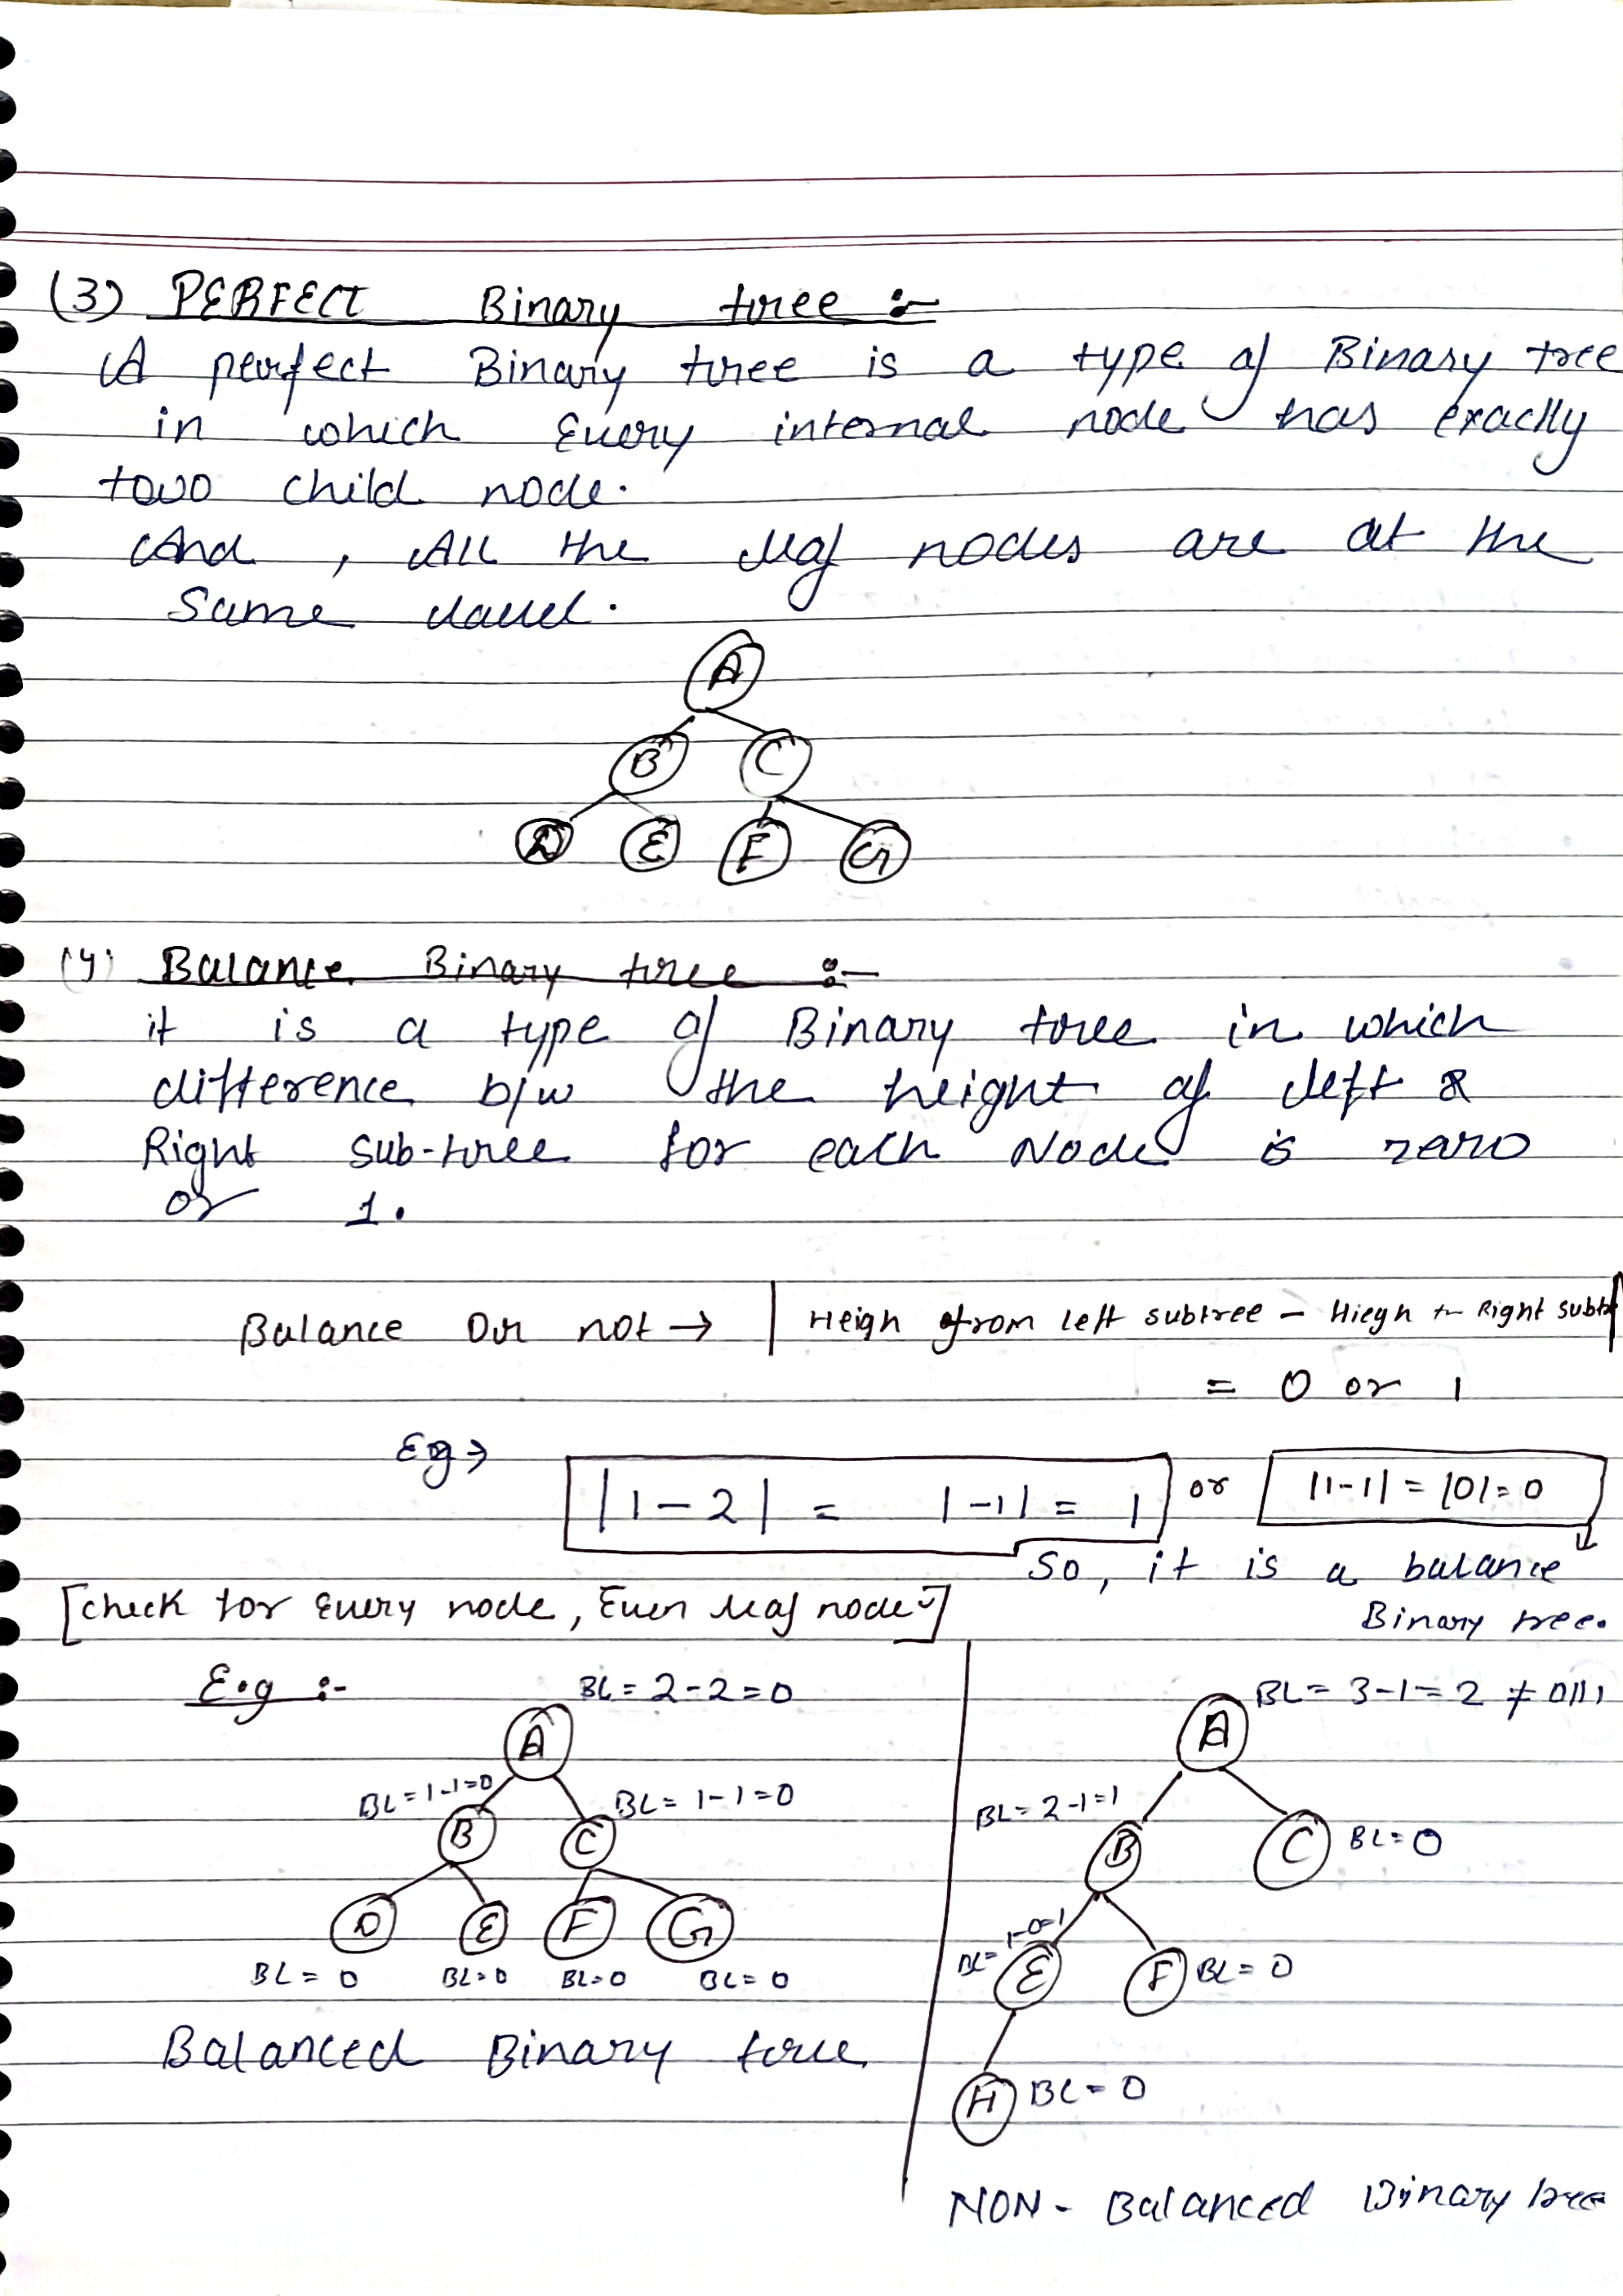 (3) PERFECT Binary tree :-
A perfect Binary tree is a type of Binary tree
in which Every internal node has exactly
two child node.
And , All the leaf nodes are at the
Same level.
A
B C
D E F G
(4) Balance Binary tree :-
it is a type of Binary tree in which
difference b/w the height of left &
Right sub-tree for each Node is zero
or 1.
Balance Or not → | Heigh from left subtree - Hiegh Right subtr|
= 0 or 1
Eg →
|1-2| = |-1| = 1 or |1-1| = |0| = 0
So, it is a balance
Binary tree.
[check for Every node, Even leaf node]
E.g :-
BL = 2-2=0
A
BL=1-1=0 BL= 1-1=0
B C
D E F G
BL= 0 BL=0 BL=0 BL= 0
Balanced Binary tree
BL= 3-1=2 ≠ 0||1
A
BL= 2-1=1
B C BL=0
BL=1-0=1
E F BL=0
H BL=0
NON- Balanced Binary tree